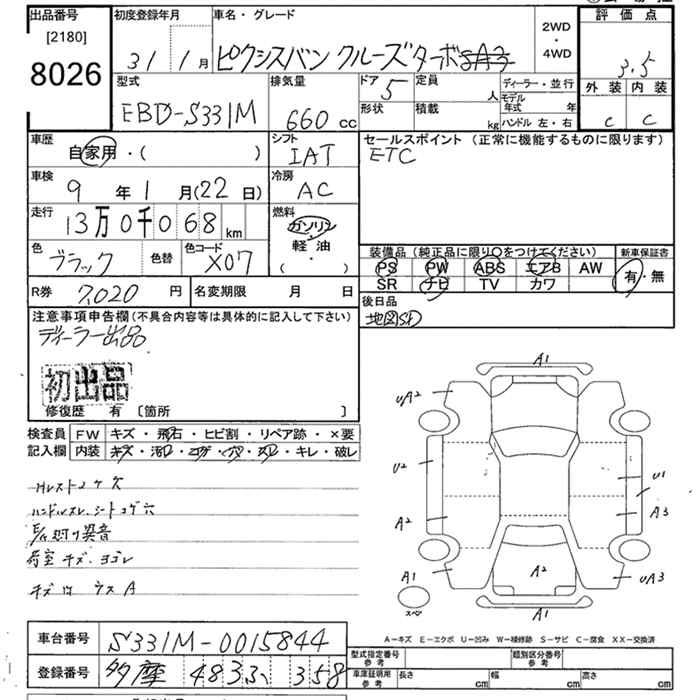 出品番号 初度登録年月 車名・グレード 2WD・4WD 評価点
[2180]
8026 31年 1月 ピクシスバン クルーズターボSAⅢ 3.5
型式 排気量 ドア 定員 人 ディーラー・並行 外装 内装
EBD-S331M 660cc 5 形状 積載 kg モデル年式 年 ハンドル 左・右 C C
車歴 シフト セールスポイント (正常に機能するものに限ります)
自家用・( ) IAT ETC
車検 冷房
9年 1月(22日) AC
走行 燃料
13万0千068km ガソリン・軽油・( )
色 色替 色コード 装備品(純正品に限り〇をつけてください) 新車保証書
ブラック X07 PS PW ABS エアB AW 有・無
R券 7,020円 名変期限 月 日 SR ナビ TV カワ
注意事項申告欄(不具合内容等は具体的に記入して下さい) 後日品
ディーラー出品 地図SD
初出品
修復歴 有 [箇所 ]
検査員 FW キズ・飛石・ヒビ割・リペア跡・×要
記入欄 内装 キズ・汚れ・コゲ・穴・スレ・キレ・破レ
ハンドルスレ、シートコゲ穴
荷室キズ、ヨゴレ
キズ ウスA
A1
UA2
U2
U1
A2
A3
A2
A1
UA3
スペア
A1
A-キズ E-エクボ U-凹み W-補修跡 S-サビ C-腐食 XX-交換済
車台番号 S331M-0015844 型式指定番号 参考 類別区分番号 参考
登録番号 多摩 483 い 358 車庫証明用 参考 長さ cm 幅 cm 高さ cm